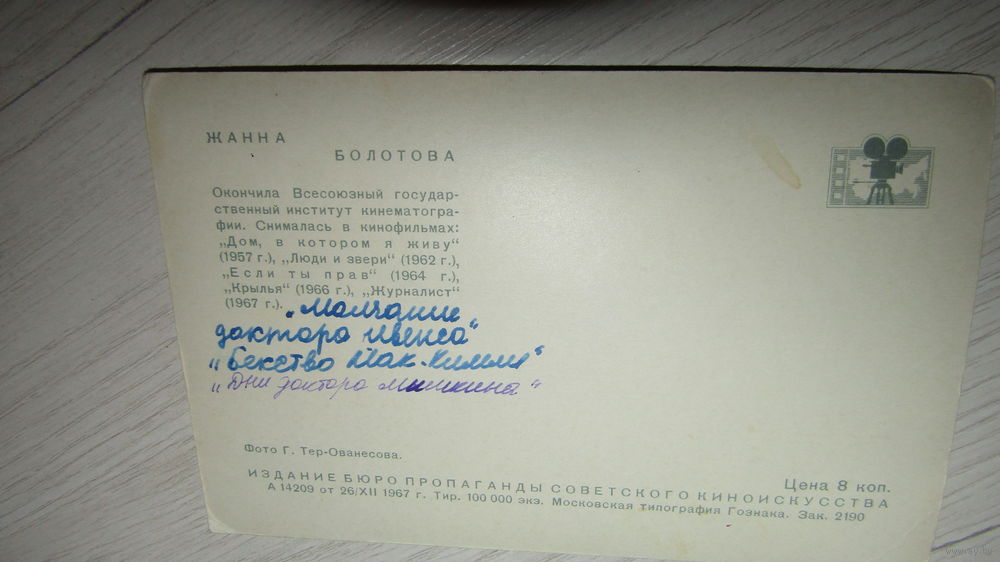 ЖАННА
БОЛОТОВА
Окончила Всесоюзный государ-
ственный институт кинематогра-
фии. Снималась в кинофильмах:
„Дом, в котором я живу“
(1957 г.), „Люди и звери“ (1962 г.),
„Если ты прав“ (1964 г.),
„Крылья“ (1966 г.), „Журналист“
(1967 г.). „Молчание
доктора Ивенса“
„Бекство Мак-Кимли“
„Дни доктора Мышкина“
Фото Г. Тер-Ованесова.
Цена 8 коп.
ИЗДАНИЕ БЮРО ПРОПАГАНДЫ СОВЕТСКОГО КИНОИСКУССТВА
А 14209 от 26/XII 1967 г. Тир. 100 000 экз. Московская типография Гознака. Зак. 2190